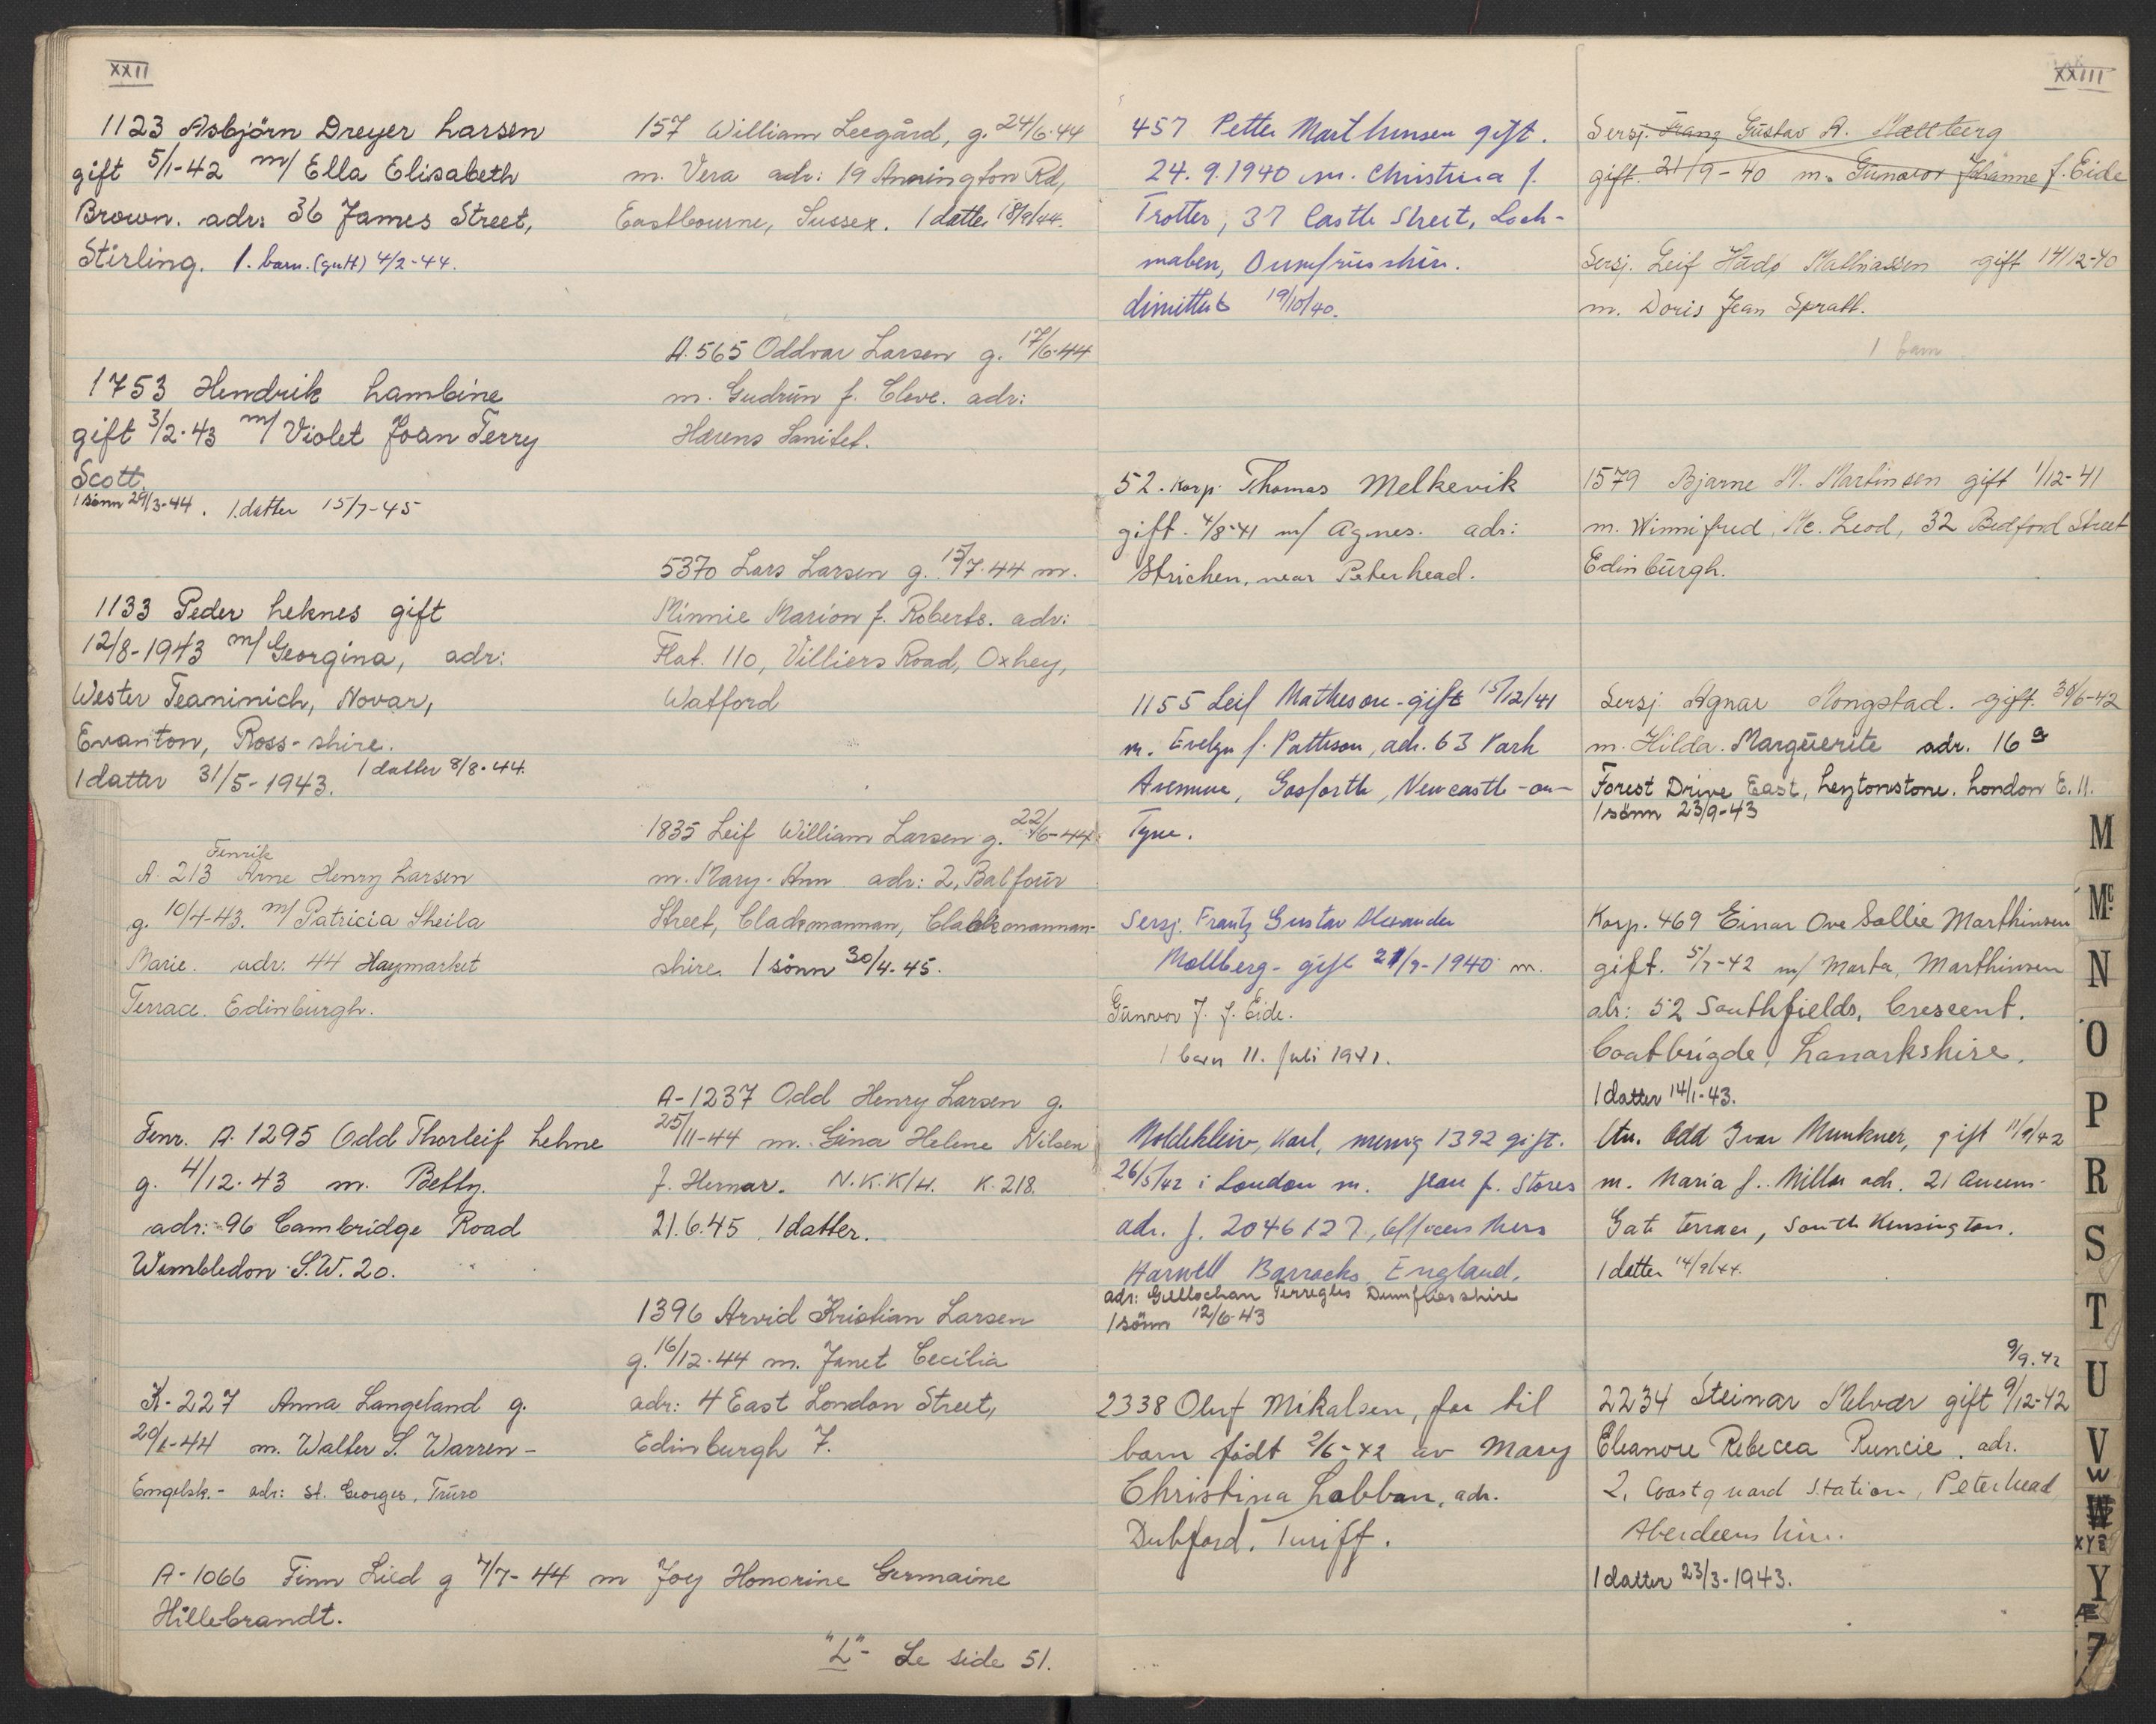 XXII
1123 Asbjörn Dreyer Larsen
gift 5/1-42 m/ Ella Elisabeth
Brown. adr. 36 James Street,
Stirling. 1. barn. (gutt) 4/2-44.
1753 Hendrik Lambine
gift 3/2-43 m/ Violet Joan Terry
Scott.
1 sönn 29/3-44. 1 datter 15/7-45
1133 Peder Leknes gift
12/8-1943 m/ Georgina, adr:
Wester Teaninich, Novar,
Evanton, Ross-shire.
1 datter 31/5-1943. 1 datter 8/8-44.
Fenrik
A. 213 Arne Henry Larsen
g. 10/4-43. m/ Patricia Sheila
Marie. adr: 44 Haymarket
Terrace. Edinburgh.
Fenr. A. 1295 Odd Thorleif Lehne
g. 4/12-43 m. Betty.
adr: 96 Cambridge Road
Wimbledon S.W. 20.
K-227 Anna Langeland g.
29/1-44 m. Walter S. Warren-
Engelsk.- adr: St. Georges, Truro
A-1066 Finn Lied g 7/7-44 m Joy Honorine Germaine
Hillebrandt.
157 William Leegård, g. 24/6-44
m. Vera adr: 19 Annington Rd,
Eastbourne, Sussex. 1 datter 18/9/44.
A. 565 Oddvar Larsen g. 17/6-44
m. Gudrun f. Cleve. adr:
Hærens Sanitet.
5370 Lars Larsen g. 15/7-44 m.
Minnie Marion f. Roberts. adr:
Flat. 110, Villiers Road, Oxhey,
Watford
1835 Leif William Larsen g. 22/6-44
m. Mary-Ann adr: 2, Balfour
Street, Clackmannan, Clackmannan-
shire. 1 sönn 30/4-45.
A-1237 Odd Henry Larsen g.
25/11-44 m. Gina Helene Nilsen
f. Hernar. N.K.K/H. K. 218.
21.6.45 1 datter.
1396 Arvid Kristian Larsen
g. 16/12-44 m. Janet Cecilia
adr: 4 East London Street,
Edinburgh 7.
"L"- Se side 51.
XXIII
457 Petter Marthinsen gift.
24.9.1940 m. Christina f.
Trotter, 37 Castle Street, Loch-
maben, Dumfriesshire.
dimittert 19/10/40.
52. Korp. Thomas Melkevik
gift. 4/8-41 m/ Agnes. adr:
Strichen, near Peterhead.
1155 Leif Matheson - gift 15/12/41
m. Evelyn f. Pattison, adr. 63 Park
Avenue, Gosforth, Newcastle-on-
Tyne.
Sersj. Frantz Gustav Alexander
Mollberg - gift 21/9-1940 m.
Gunvor J. f. Eide.
1 barn 11. juli 1941.
Moldekleiv, Karl, menig 1392 gift.
26/5/42 i London m. Jean f. Stores
adr. f. 2046127, Officers Mess
Harwell Barracks England.
adr: Gillochan Terregles Dumfriesshire
1 sönn 12/6-43
2338 Oluf Mikalsen, far til
barn födt 2/6-42 av Mary
Christina Labban, adr.
Dubford. Turiff.
Sersj. Franz Gustav A. Mattberg
gift. 21/9-40 m. Gunvor Johanne f. Eide
Sersj. Leif Hadø Mathiassen gift 14/12-40
m. Doris Jean Spratt.
1 barn
1579 Bjarne M. Martinsen gift 1/12-41
m. Winnifred, Mc. Leod, 32 Bedford Street
Edinburgh.
Sersj. Agnar Mongstad. gift. 30/6-42
m. Hilda. Marguerite adr. 16 a
Forest Drive East, Leytonstone. London E. 11.
1 sönn 23/9-43
Korp. 469 Einar Ove Sollie Marthinsen
gift. 5/7-42 m/ Marta, Marthinsen
adr: 52 Southfields, Crescent.
Coatbrigde, Lanarkshire.
1 datter 14/1-43.
Ltn. Odd Ivar Munkner, gift 11/9/42
m. Maria f. Miller adr. 21 Queens-
Gate terrace, South Kensington.
1 datter 14/9/44.
9/9.42
2234 Steinar Melvær gift 9/12-42
Eleanore Rebecca Runcie. adr.
2, Coastguard Station, Peterhead
Aberdeenshire.
1 datter 23/3-1943.
M
Mc
N
O
P
R
S
T
U
V
W
W
XYZ
Y
Æ